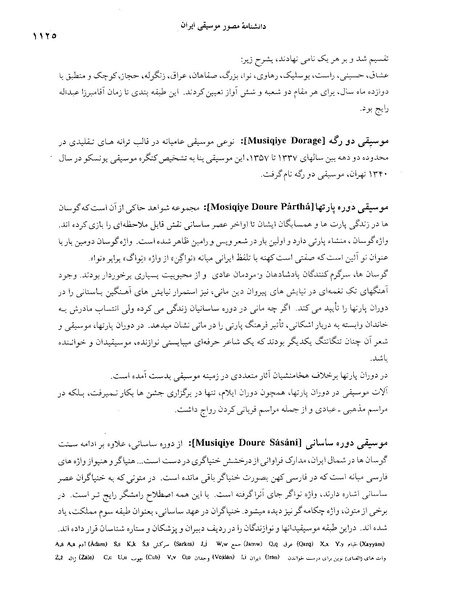 دانشنامهٔ مصور موسیقی ایران
۱۱۲۵
تقسیم شد و بر هر یک نامی نهادند، بشرح زیر:
عشاق، حسینی، راست، بوسلیک، رهاوی، نوا، بزرگ، صفاهان، عراق، زنگوله، حجاز، کوچک و منطبق با
دوازده ماه سال، برای هر مقام دو شعبه و شش آواز تعیین کردند. این طبقه بندی تا زمان آقامیرزا عبداله
رایج بود.
موسیقی دو رگه [Musiqiye Dorage]: نوعی موسیقی عامیانه در قالب ترانه های تقلیدی در
محدوده دو دهه بین سالهای ۱۳۳۷ تا ۱۳۵۷، این موسیقی بنا به تشخیص کنگره موسیقی یونسکو در سال
۱۳۴۰ تهران، موسیقی دو رگه نام گرفت.
موسیقی دوره پارتها [Mosiqiye Doure Pârthâ]: مجموعه شواهد حاکی از آن است که گوسان
ها در زندگی پارت ها و همسایگان ایشان تا اواخر عصر ساسانی نقش قابل ملاحظه‌ای را بازی کرده اند.
واژه گوسان ، منشاء پارتی دارد و اولین بار در شعر ویس و رامین ظاهر شده است. واژه گوسان دومین بار با
عنوان نو آئین است که صفتی است کهنه با تلفظ ایرانی میانه «نواگَن» از واژه «نِواگ» برابر «نوا».
گوسان ها، سرگرم کنندگان پادشاهان و مردمان عادی و از محبوبیت بسیاری برخوردار بودند. وجود
آهنگهای تک نغمه‌ای در نیایش های پیروان دین مانی، نیز استمرار نیایش های آهنگین باستانی را در
دوران پارتها را تأیید می کند. اگر چه مانی در دوره ساسانیان زندگی می کرده ولی انتساب مادرش به
خاندان وابسته به دربار اشکانی، تأثیر فرهنگ پارتی را در مانی نشان میدهد. در دوران پارتها، موسیقی و
شعر آن چنان تنگاتنگ یکدیگر بودند که یک شاعر حرفه‌ای میبایستی نوازنده، موسیقیدان و خواننده
باشد.
در دوران پارتها برخلاف هخامنشیان آثار متعددی در زمینه موسیقی بدست آمده است.
آلات موسیقی در دوران پارتها، همچون دوران ایلام، تنها در برگزاری جشن ها بکار نمیرفت، بلکه در
مراسم مذهبی ـ عبادی و از جمله مراسم قربانی کردن رواج داشت.
موسیقی دوره ساسانی [Musiqiye Doure Sâsâni]: از دوره ساسانی، علاوه بر ادامه سنت
گوسان ها در شمال ایران، مدارک فراوانی از درخشش خنیاگری در دست است... هنیاگر و هنیواز واژه های
فارسی میانه است که در فارسی کهن بصورت خنیاگر باقی مانده است. در متونی که به خنیاگران عصر
ساسانی اشاره دارند، واژه نواگر جای آنرا گرفته است. با این همه اصطلاح رامشگر رایج تر است. در
برخی از متون، واژه چکامه گر نیز دیده میشود. خنیاگران در عهد ساسانی، بعنوان طبقه سوم مملکت، یاد
شده اند. دراین طبقه موسیقیدانها و نوازندگان را در ردیف دبیران و پزشکان و ستاره شناسان قرار داه اند.